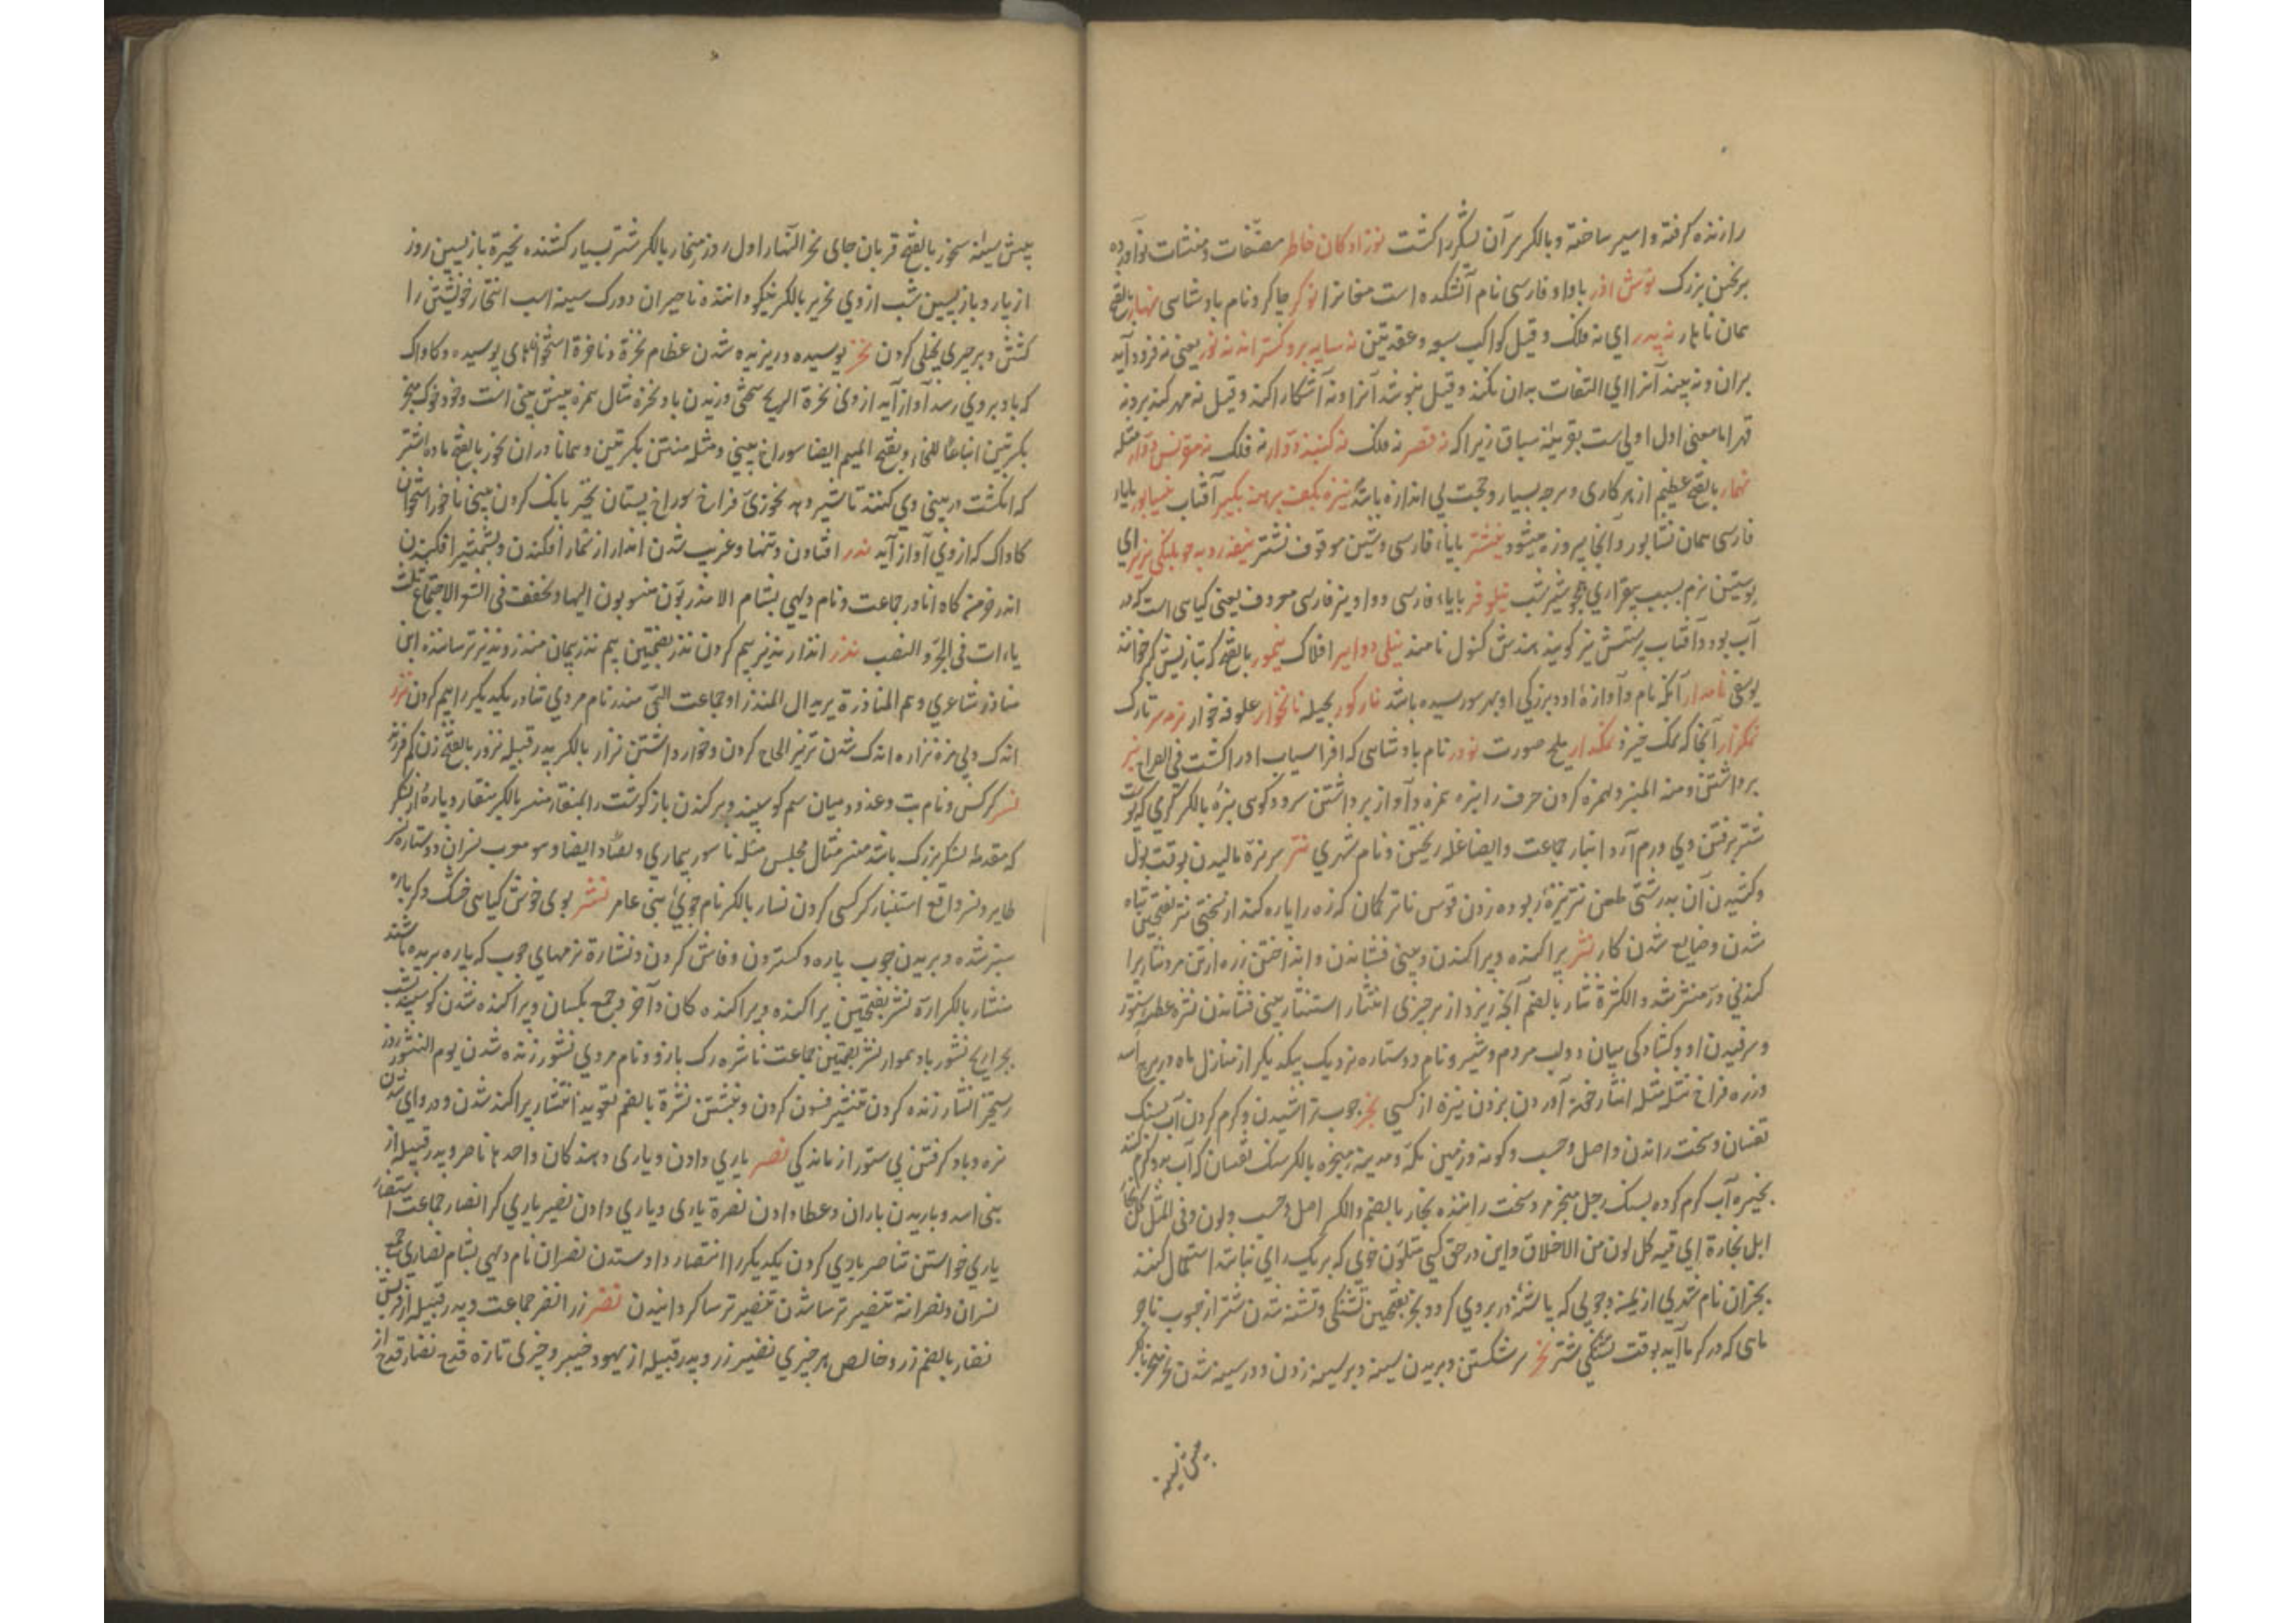 را زنده گرفته و اسیر ساخته و بالکر بر آن لشکر را کشت نوزادکان خاطر مصنفات و منشات نوآورده
بر نخبن بزرک نوش اذر باواو فارسی نام آتشکده است مغانرا نوکر چاکر و نام بادشاهی نهار بالفتح
همان ناهار نه پدر ای نه فلک و قیل کواکب سبعه و عقدتین نه سایه برو کستراند نه نور یعنی نه فرود آید
بران و نه بیند آنرا ای التفات بدان نکند و قیل نپوشد آنرا و نه آشکارا کند و قیل نه مهر کند برو نه
قهر اما معنی اول اولی است بقرینه سباق زیرا که نه قصر نه فلک نه کنبد دوار نه فلک نه مقرنس دوار مثله
نهمار بالفتح عظیم از هر کاری و هرچه بسیار و عجب بی اندازه باشد نیزه بکف برهنه بکیر آفتاب نیسابور بایاء
فارسی همان نشابور و آنجا پیروزه میشود نیشتر بایاء فارسی و شین موقوف نشتر
پوستین نرم بسبب بیقراری همچو شیر شب نیلوفر بایاء فارسی و واو نیز فارسی معروف یعنی کیاهی است که در
آب بود و آفتاب پرستش نیز کویند هندش کنول نامند نیلی دوایر افلاک نیمور بالفتح
یوسفی نامدار آنکه نام و آوازه او و بزرکی او بهر سو رسیده باشد نارکور بخیله نانخوار علوفه خوار نرمه سر تارک
نمکزار آنجا که نمک خیزد نمکدار ملیح صورت نوذر نام بادشاهی که افراسیاب او را کشت فی الصراح نبر
برداشتن و منه المنبر و همزه کردن حرف را نبره همزه و آواز برداشتن سرود کوی
شتر برفتن وی ورم آرد انبار جماعت و ایضا غله ریختن و نام شهری نتر بر نره مالیدن بوقت بول
و کشیدن آن بدرشتی طعن نتر نتزه ربوده زدن قوس ناتر کمان که زه را پاره کند از سختی نتر بفتحتین تباه
شدن و ضایع شدن کار نثر پراکنده و پراکندن و بینی فشاندن و انداختن زره از تن مرد نثار پراکندنی
و درّ منثّر شدد للکثرة نثار بالضم آنچه ریزد از هر چیزی انتثار استنثار بینی فشاندن نثره عطسه ستور
و سرفیدن او و کشادکی میان دو لب مردم و شیر و نام دو ستاره نزدیک بیکدیکر از منازل ماه در برج اسد
و زره فراخ نثله مثله انثار خون آوردن بزدن نیزه از کسی نجر چوب تراشیدن و کرم کردن آب بسنک
تفسان و سخت راندن و اصل و حسب و کونه و زمین مکه و مدینه منجره بالکسر سنک تفسان که آب بدو کرم کنند
نجیره آب کرم کرده بسنک رجل منجر مرد سخت راننده نجار بالضم والکسر اصل و حسب و لون و فی المثل کل نجار
ابل نجارة ای فیه کل لون من الاخلاق و این در حق کسی متلون خوی که بر یک رای نباشد استعمال کنند
نجران نام شهری از یمن و چوبی که پاشنه در بروی کردد نجر بفتحتین تشنکی و تشنه شدن شتر از حبوب ناجر
ماهی که در کرما آید بوقت تشنکی شتر نحر سر شکستن و بریدن سینه و بر سینه زدن و در سینه شدن
پیش سینه
پیش سینه نحور بالفتح قربان جای نحر النهار اول روز منحار بالکسر شتر بسیار کشنده نحیرة بازپسین روز
از یار و بازپسین شب از وی نحریر بالکسر نیکو داننده ناحیران دو رک سینه اسب انتحار خویشتن را
کشتن و بر چیزی بخیلی کردن نخر پوسیده و ریزیده شدن عظام نخرة و ناخرة استخوانهای پوسیده و کاواک
که باد بروی رسد آواز آید از وی نخرة الریح سختی وزیدن باد نخره مثال همزه پیش بینی است و خوک منخر
بکسرتین اتباعا للخاء و بفتح المیم ایضا سوراخ بینی و مثله منتن بکسرتین و همانا دران نخور بالفتح ماده اشتر
که انکشت در بینی وی کنند تا شیر دهد نخوری فراخ سوراخ پستان نخیر بانک کردن بینی ناخر استخوان
کاواک که از وی آواز آید ندر افتادن و تنها و غریب شدن اندار از شمار افکندن و بشمشیر افکندن
اندر خرمن کاه انادر جماعت و نام دیهی بشام الاندریون منسوبون الیها و تخفف فی الشعر لاجتماع ثلث
یاءات فی الجر و النصب نذر انذار نذیر بیم کردن نذر بضمتین بیم نذر پیمان منذر و نذیر ترساننده ابن
مناذر شاعری و هم المناذرة یرید ال المنذر او جماعت الحی منذر نام مردی تناذر یکدیکر را بیم کردن نزر
اندک و بی مزه نزاره اندک شدن نزیر الحاح کردن و خوار داشتن نزار بالکسر پدر قبیله نزور بالفتح زن کم فرزند
نسر کرکس و نام بت و غدود میان سم کوسپند و برکندن باز کوشت را بمنقار منسر بالکسر منقار و پاره از لشکر
که مقدمه لشکر بزرک باشد منسر مثال مجلس مثله ناسور بیماری و بصاد ایضا و هو معرب نسران دو ستاره نسر
طایر و نسر واقع استنسار کرکسی کردن نسار بالکسر نام جوی بنی عامر نشر بوی خوش کیاهی خشک و کر باره
سبز شده و بریدن چوب پاره و کستردن و فاش کردن و نشارة نرمهای چوب که پاره بریده باشند
منشار بالکسر اره نشر بفتحتین پراکنده و پراکنده کان و آخر و جمع یکسان و پراکنده شدن کوسپند بشب
بچرا ریح نشور باد هموار نشر بضمتین جماعت ناشره رک بازو و نام مردی نشور زنده شدن یوم النشور روز
رستخیز انشار زنده کردن تنشیر فسون کردن و نبشتن نشرة بالضم تعویذ انتشار پراکنده شدن و در وای شدن
نره و باد کرفتن پی ستور از ماندکی نصر یاری دادن و یاری دهند کان واحدها ناصر و پدر قبیله از
بنی اسد و باریدن باران و عطا دادن نصرة یاری و یاری دادن نصیر یاری کر انصار جماعت استنصار
یاری خواستن تناصر یاری کردن یکدیکر را انتصار داد ستدن نصران نام دیهی بشام نصاری جمع
نصران و نصرانة تنصر ترسا شدن تنصیر ترسا کردانیدن نضر زر انضر جماعت و پدر قبیله از قریش
نضار بالضم زر و خالص هر چیزی نضیر زر و پدر قبیله از یهود خیبر و چیزی تازه قدح نضار قدح از